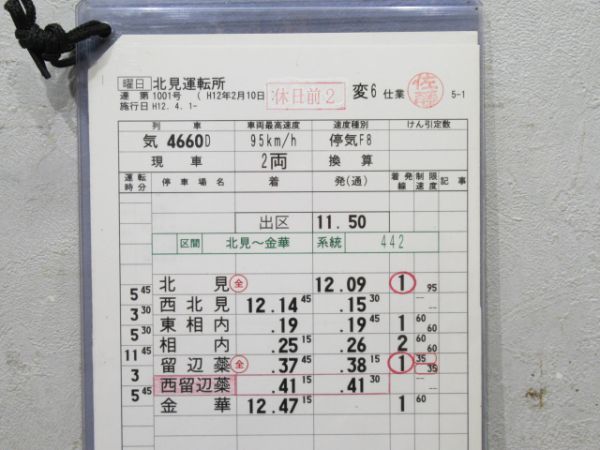 曜日 北見運転所
運 第 1001号 ( H12年2月10日 休日前2 変6 仕業 佐藤 5-1
施行日 H12. 4. 1-
列車 車両最高速度 速度種別 けん引定数
気 4660D 95km/h 停気F8
現車 2両 換算
運転時分 停車場名 着 発(通) 着発線 制限速度 記事
出区 11.50
区間 北見～金華 系統 442
北見 全 12.09 1 95
5 45
西北見 12.14 45 .15 30
3 30
東相内 .19 .19 45 1 60 60
5 30
相内 .25 15 .26 2 60 60
11 45
留辺蘂 全 .37 45 .38 15 1 35 35
3
西留辺蘂 .41 15 .41 30
5 45
金華 12.47 15 1 60